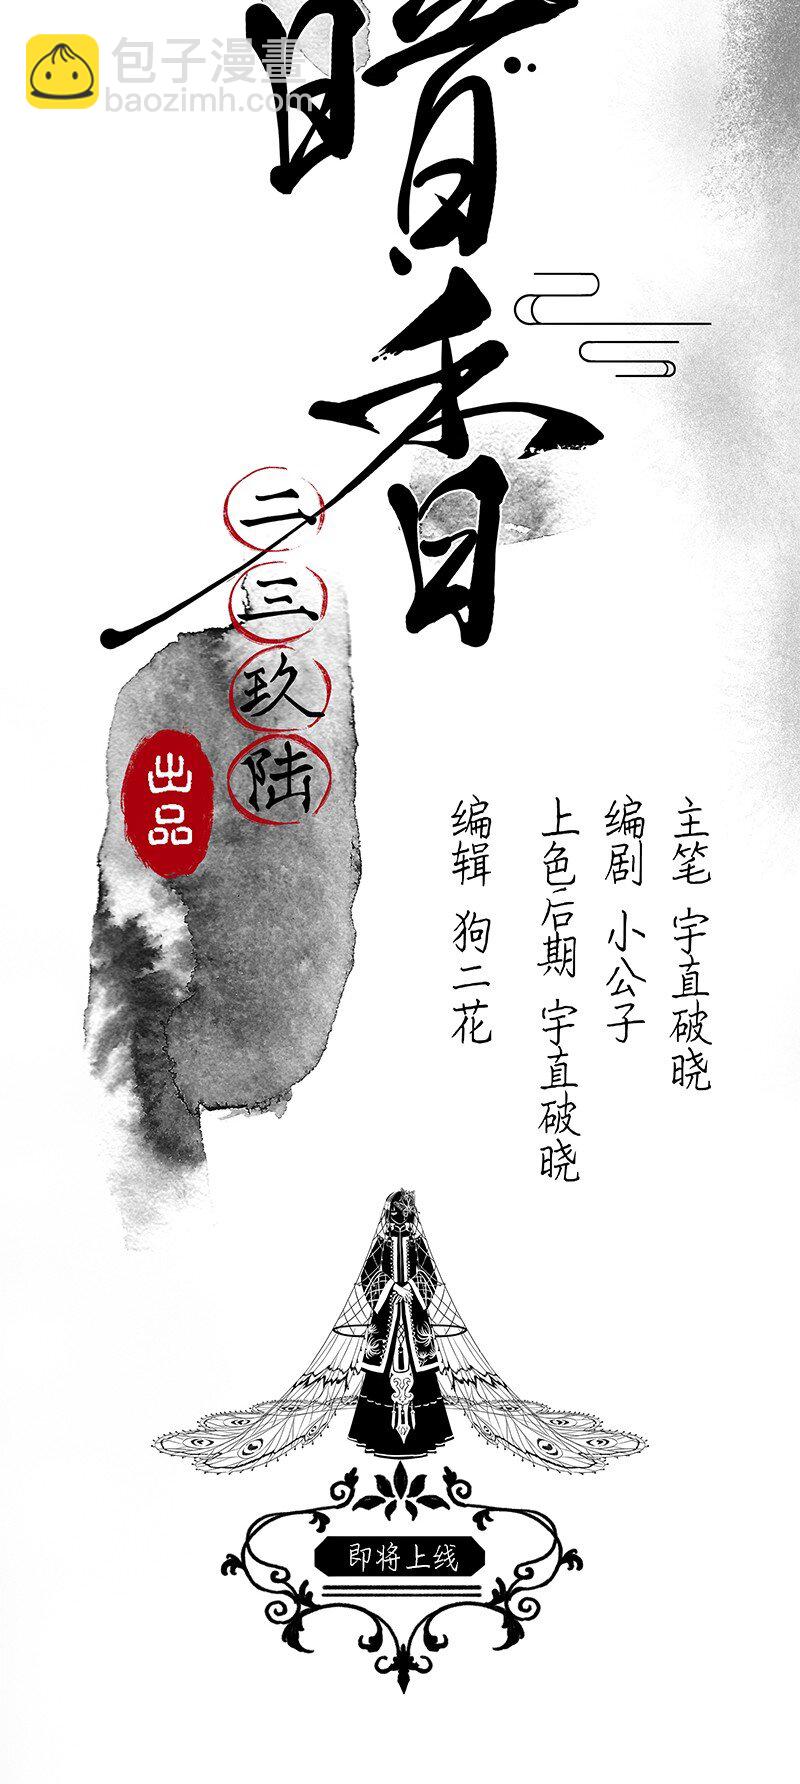 包子漫畫
baozimh.com
暗香
二三玖陆
出品
主笔 宇直破晓
编剧 小公子
上色后期 宇直破晓
编辑 狗二花
即将上线